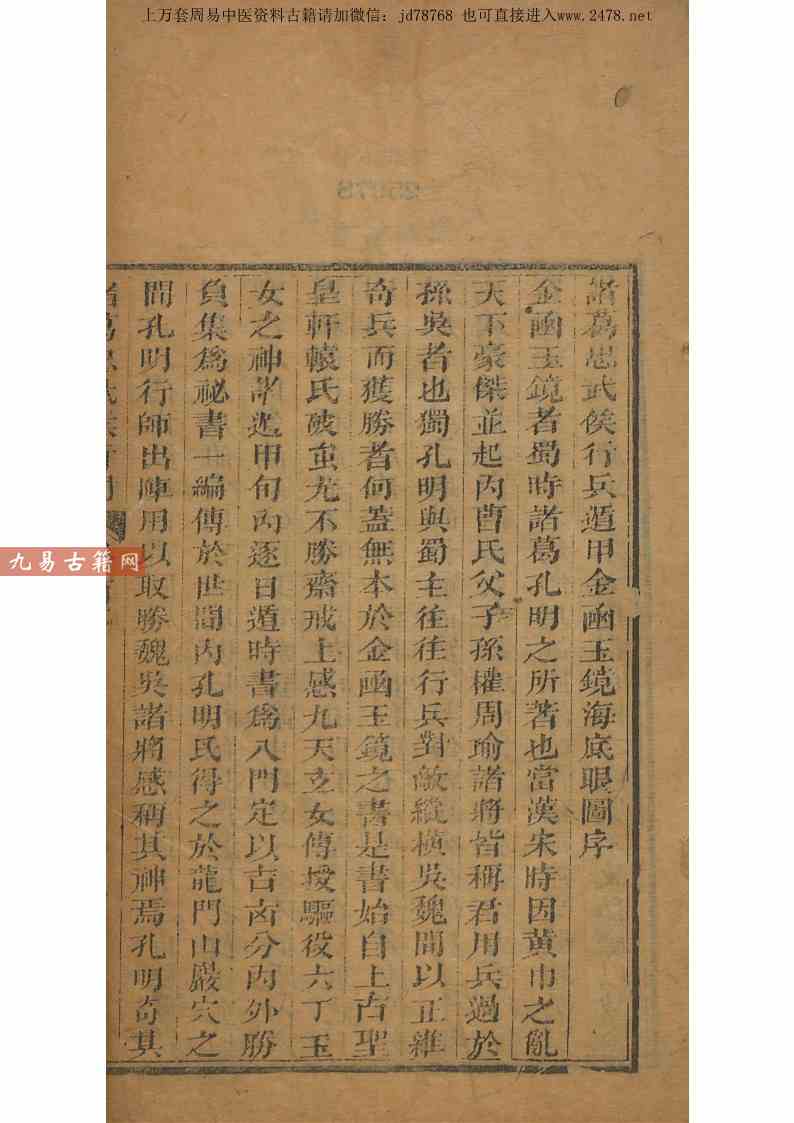 上万套周易中医资料古籍请加微信：jd78768 也可直接进入www.2478.net
諸葛忠武侯行兵遁甲金函玉鏡海底眼圖序
金函玉鏡者蜀時諸葛孔明之所著也當漢末時因黄巾之亂
天下豪傑並起内曹氏父子孫權周瑜諸將皆稱君用兵過於
孫吳者也獨孔明與蜀主往往行兵對敵縱橫吳魏間以正雜
奇兵而獲勝者何蓋無本於金函玉鏡之書是書始自上古聖
皇軒轅氏破蚩尤不勝齋戒上感九天玄女傳授驅役六丁玉
女之神諸遁甲旬内逐日遁時書爲八門定以吉凶分内外勝
負集爲祕書一編傳於世間内孔明氏得之於龍門山巖穴之
間孔明行師出陣用以取勝魏吳諸將感稱其神焉孔明奇其
九易古籍网